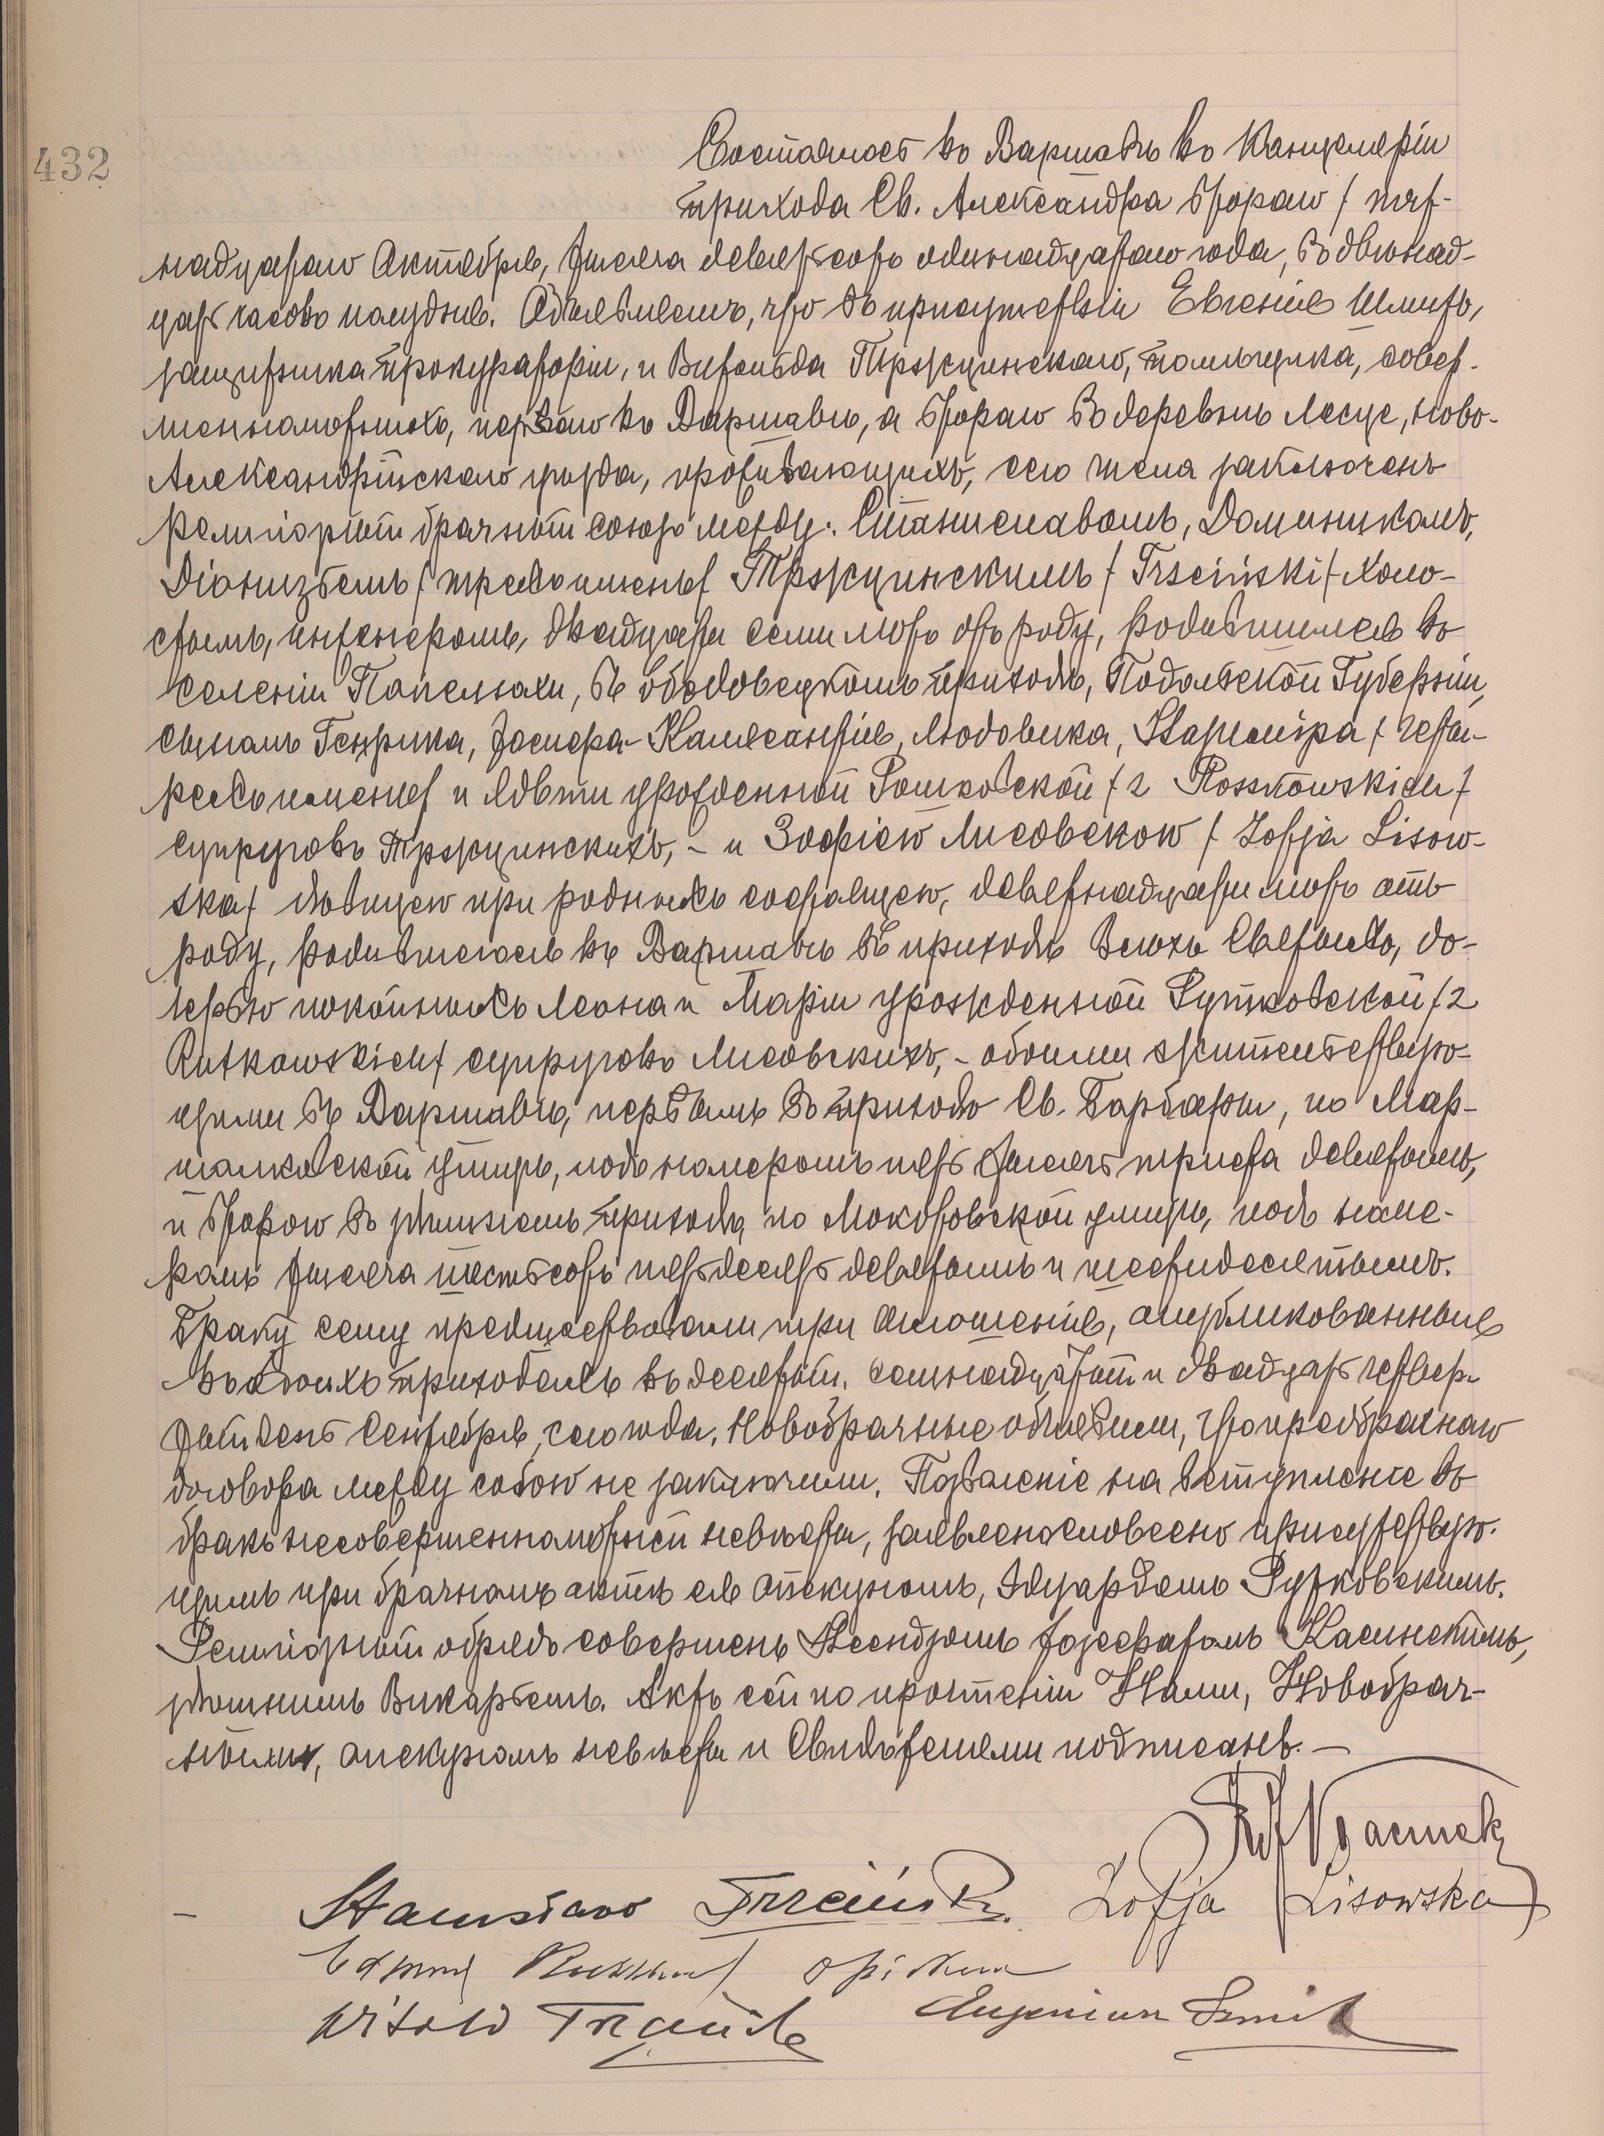 432
Состоялось въ Варшавѣ въ Канцеляріи
прихода Св. Александра втораго / пят-
надцатаго Октября, тысяча девятьсотъ одиннадцатаго года, въ двѣнад-
цать часовъ полудня. Объявляемъ, что въ присутствіи Евгенія Шмитъ,
защитника прокураторіи, и Витольда Тржцинскаго, помѣщика, совер-
шеннолѣтнихъ, перваго въ Варшавѣ, а втораго въ деревнѣ Лесце, Ново-
Александрійскаго уѣзда, проживающихъ, сего числа заключенъ
религіозный брачный союзъ между: Станиславомъ, Доминикомъ,
Діонизіемъ / трехъ именъ / Тржцинскимъ / Trzciński / холо-
стымъ, инженеромъ, двадцати семи лѣтъ отъ роду, родившимся въ
селеніи Папелюхи, въ ободовецкомъ приходѣ, Подольской Губерніи,
сыномъ Генрика, Іосифа-Калясантія, Людовика, Казиміра / четы-
рехъ именъ / и Ядвиги урожденной Рошковской / z Roszkowskich /
супруговъ Тржцинскихъ, – и Зофіею Лисовскою / Zofja Lisow-
ska / дѣвицею при родныхъ состоящею, девятнадцати лѣтъ отъ
роду, родившеюся въ Варшавѣ въ приходѣ Всѣхъ Святыхъ, до-
черью покойныхъ Леона и Маріи урожденной Рутковской / z
Rutkowskich / супруговъ Лисовскихъ, – обоими жительствую-
щими въ Варшавѣ, первымъ въ приходѣ Св. Барбары, по Мар-
шалковской улицѣ, подъ номеромъ пять тысячъ триста девятымъ,
и второю въ здѣшнемъ приходѣ, по Мокотовской улицѣ, подъ номе-
ромъ тысяча шестьсотъ пятьдесятъ девятымъ и шестидесятымъ.
Браку сему предшествовали три оглашенія, опубликованныя
въ обоихъ приходахъ въ десятый, семнадцатый и двадцать четвер-
тый день Сентября, сего года. Новобрачные объявили, что предбрачнаго
договора между собою не заключили. Позволеніе на вступленіе въ
бракъ несовершеннолѣтней невѣсты, заявлено словесно присутствую-
щимъ при брачномъ актѣ ея опекуномъ, Эдуардомъ Рутковскимъ.
Религіозный обрядъ совершенъ Ксендзомъ Іозефатомъ Касинскимъ,
здѣшнимъ Викаріемъ. Актъ сей по прочтеніи Нами, Новобрач-
ными, опекуномъ невѣсты и Свидѣтелями подписанъ. –
Stanisław Trzciński. Zofja Lisowska
opiekun
Witold Trzciński Eugeniusz Szmit